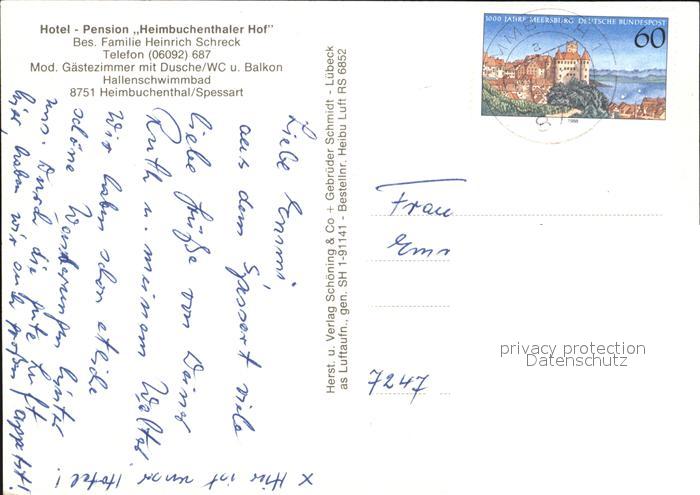 Hotel - Pension „Heimbuchenthaler Hof"
Bes. Familie Heinrich Schreck
Telefon (06092) 687
Mod. Gästezimmer mit Dusche/WC u. Balkon
Hallenschwimmbad
8751 Heimbuchenthal/Spessart
Liebe Emmi,
aus dem Spessart viele
liebe Grüße von Deiner
Ruth u. meinem Walter
Wir haben schon etliche
schöne Wanderungen hinter
uns. Durch die gute Luft
hier haben wir auch großen Appetit!
x Hier ist unser Hotel!
Herst. u. Verlag Schöning & Co + Gebrüder Schmidt - Lübeck
as Luftaufn., gen. SH 1-91141 - Bestellnr. Heibu Luft RS 6852
1000 JAHRE MEERSBURG DEUTSCHE BUNDESPOST
60
1988
Frau
Emm
7247
privacy protection
Datenschutz